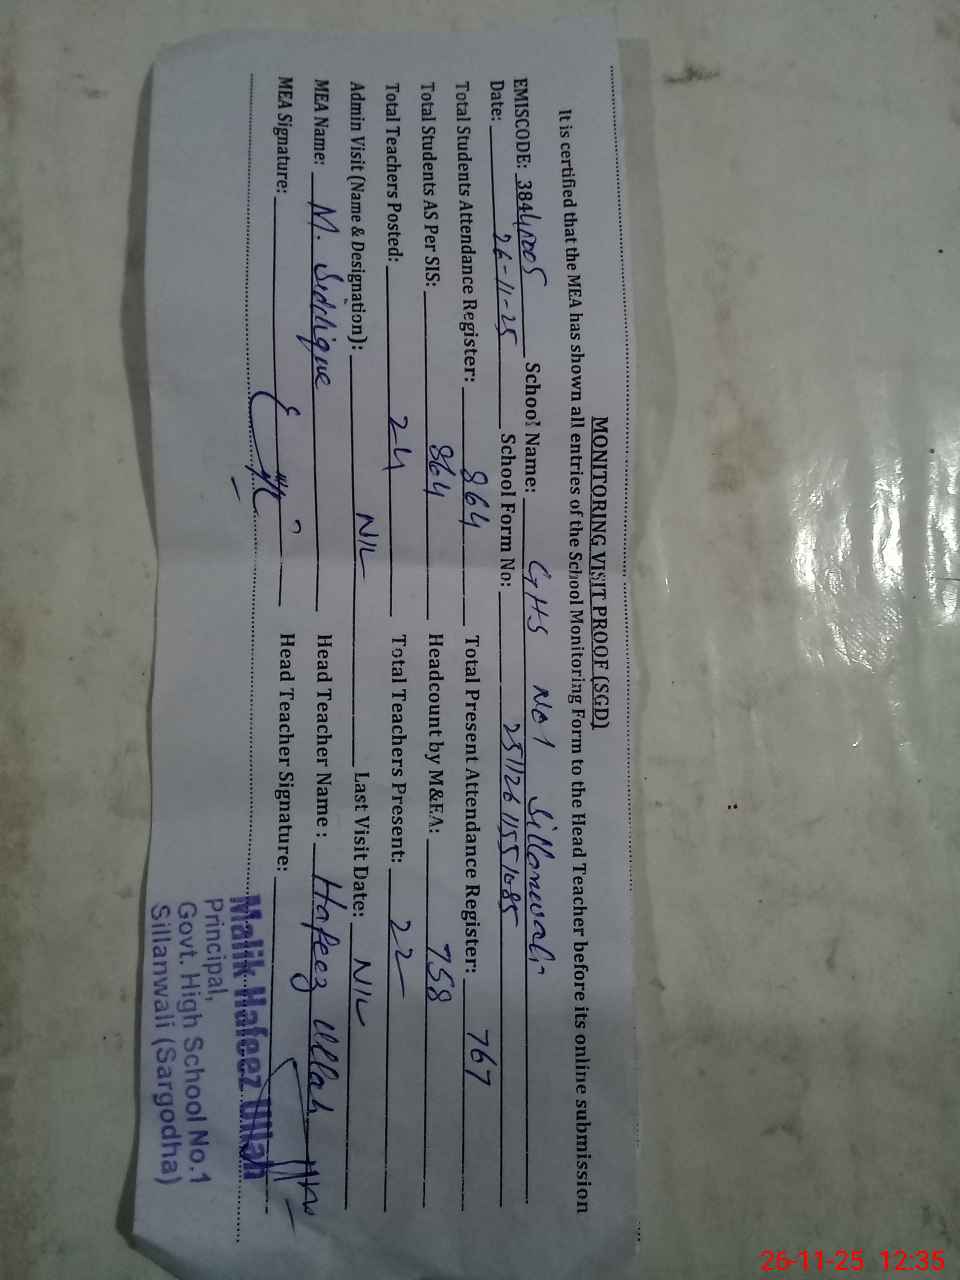 MONITORING VISIT PROOF (SGD)
It is certified that the MEA has shown all entries of the School Monitoring Form to the Head Teacher before its online submission
EMISCODE: 38441005 School Name: GHS No 1 Sillanwali
Date: 26-11-25 School Form No: 25112611551085
Total Students Attendance Register: 864 Total Present Attendance Register: 767
Total Students AS Per SIS: 864 Headcount by M&EA: 758
Total Teachers Posted: 24 Total Teachers Present: 22
Admin Visit (Name & Designation): NIL Last Visit Date: NIL
MEA Name: M. Siddique Head Teacher Name: Hafeez Ullah
MEA Signature: Head Teacher Signature:
Malik Hafeez Ullah
Principal,
Govt. High School No.1
Sillanwali (Sargodha)
26-11-25 12:35